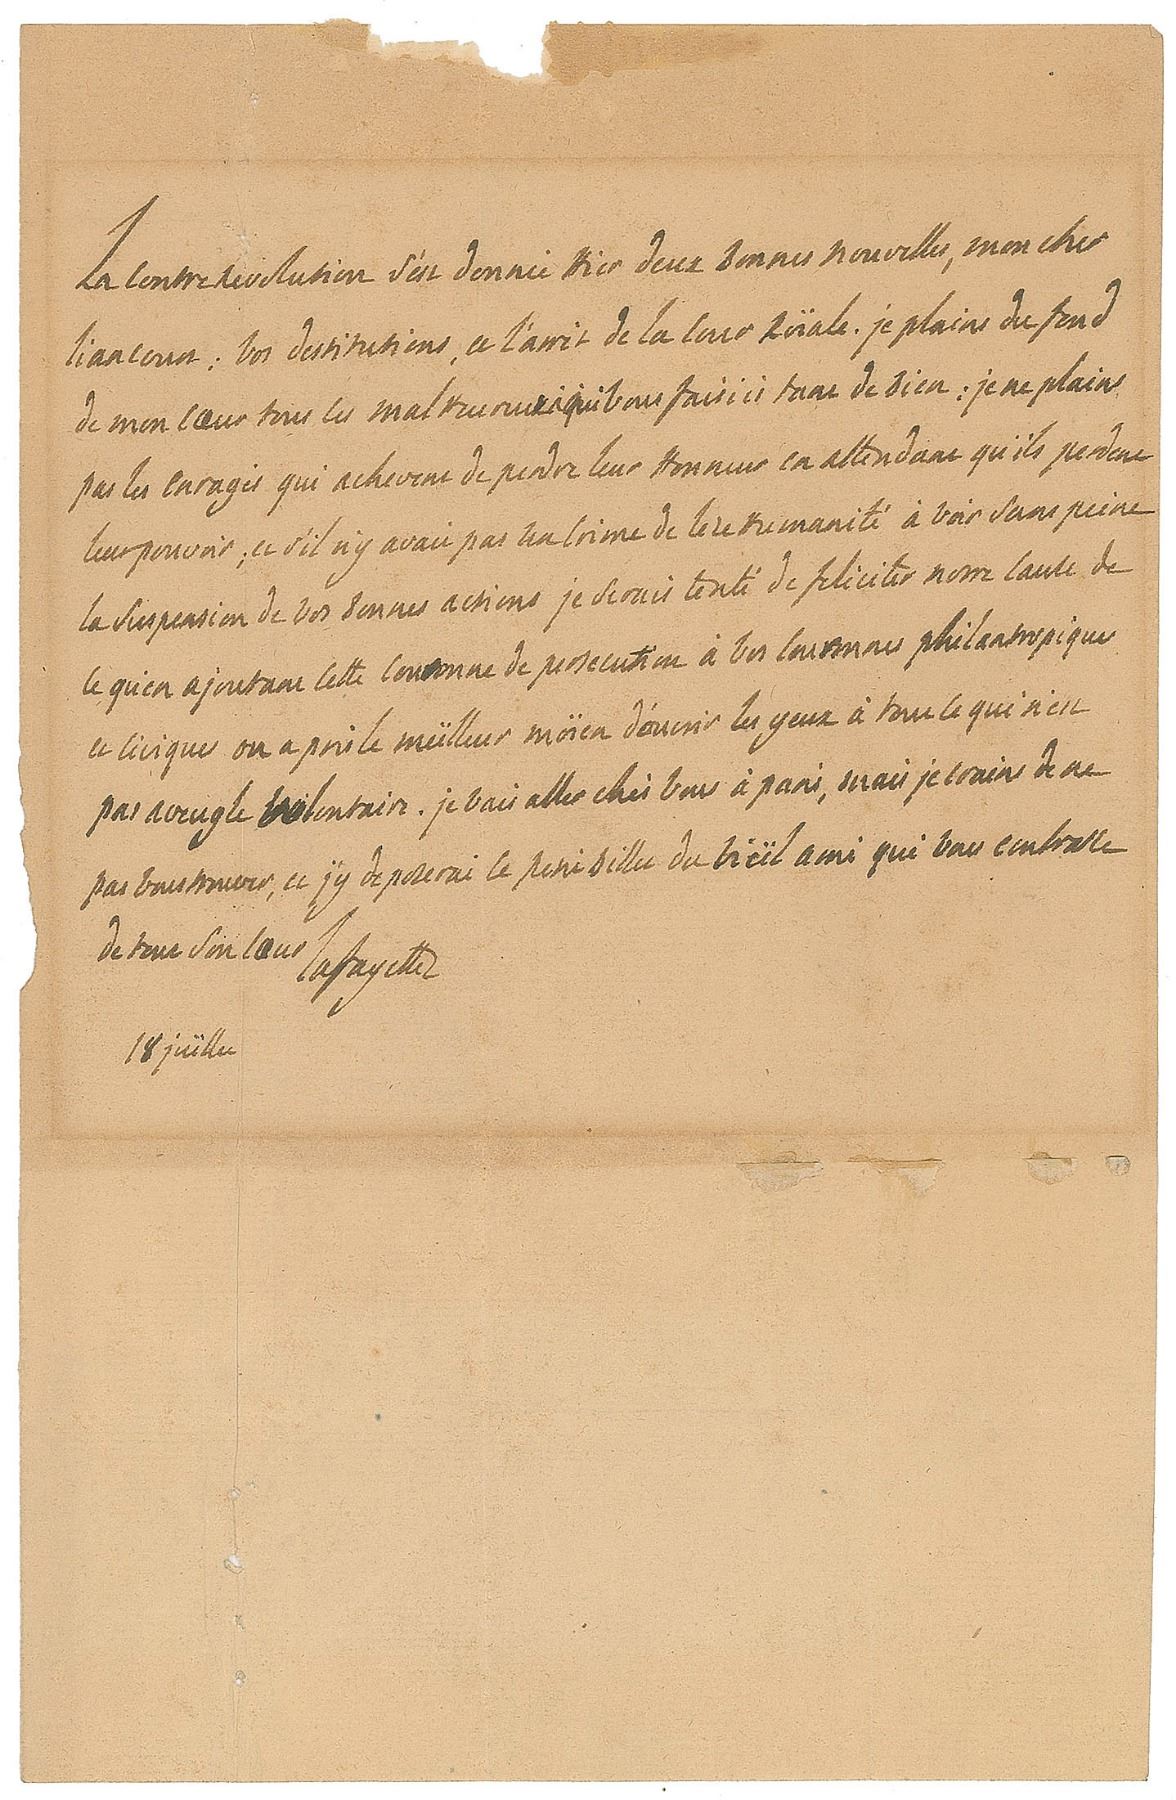 La contre revolution s'est donnée hier deux bonnes nouvelles, mon cher
liancourt : vos destitutions, et l'arret de la cour roïale. je plains du fond
de mon cœur tous les malheureux à qui vous faisiés tant de bien : je ne plains
pas les enragés qui achevent de perdre leur honneur en attendant qu'ils perdent
leur pouvoir ; et s'il n'y avait pas un crime de leze humanité à voir sans peine
la suspension de vos bonnes actions je serais tenté de feliciter notre cause de
ce qu'en ajoutant cette couronne de persecution à vos couronnes philantropiques
et civiques on a pris le meïlleur moïen d'ouvrir les yeux à tout ce qui n'est
pas aveugle volontaire. je vais aller chés vous à paris, mais je crains de ne
pas vous trouver, et j'y deposerai le petit billet du vieïl ami qui vous embrasse
de tout son cœur
Lafayette
18 juïllet